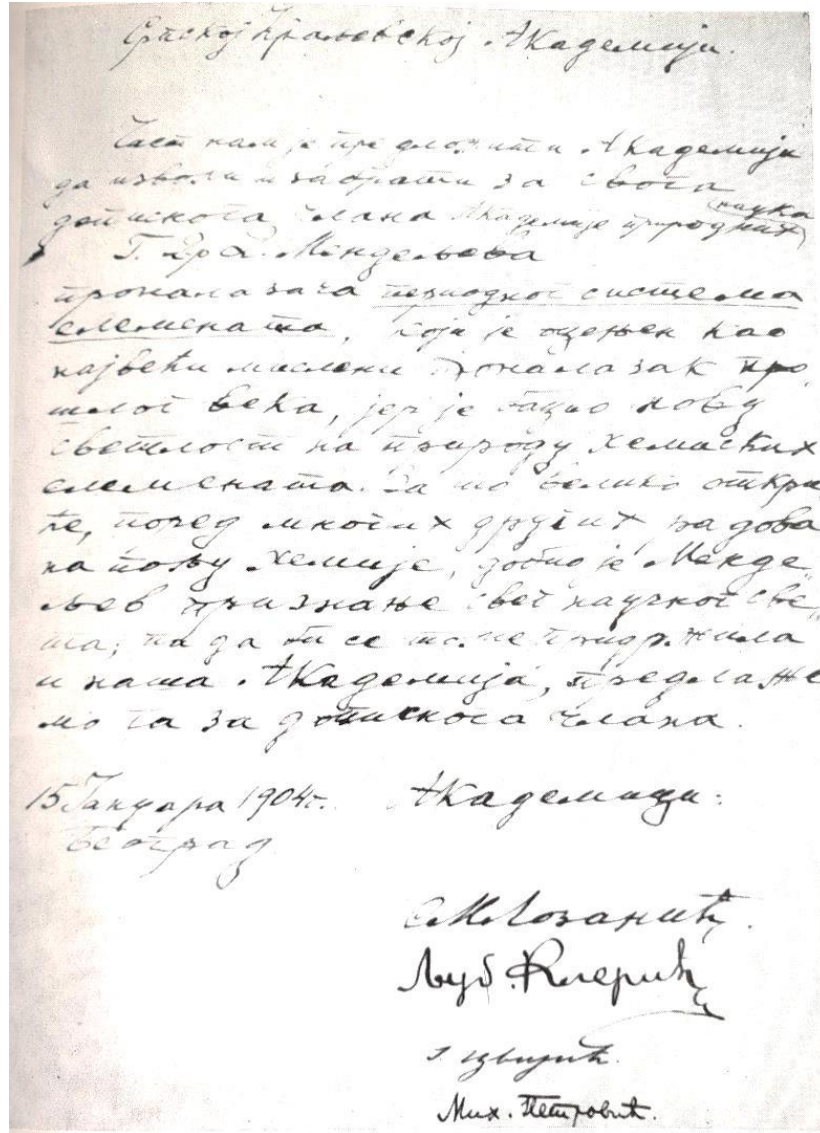 Српској Краљевској Академији.
Част нам је предложити Академији
да изволи изабрати за свога
дописнога члана Академије природних наука
Г. Др Д. Мендељева
проналазача периодног система
елемената, који је оцењен као
највећи мислени проналазак про
шлог века, јер је бацио нову
светлост на природу хемиских
елемената. За то велико откри
ће, поред многих других радова
на пољу хемије, добио је Менде„
љев признање свег научног све„
та; па да би се томе придржила
и наша Академија, предлаже
мо га за дописнога члана.
15 Јануара 1904г.
Београд
Академици:
С.М.Лозанић.
Љуб. Клерић
Ј. Цвијић.
Мих. Петровић.